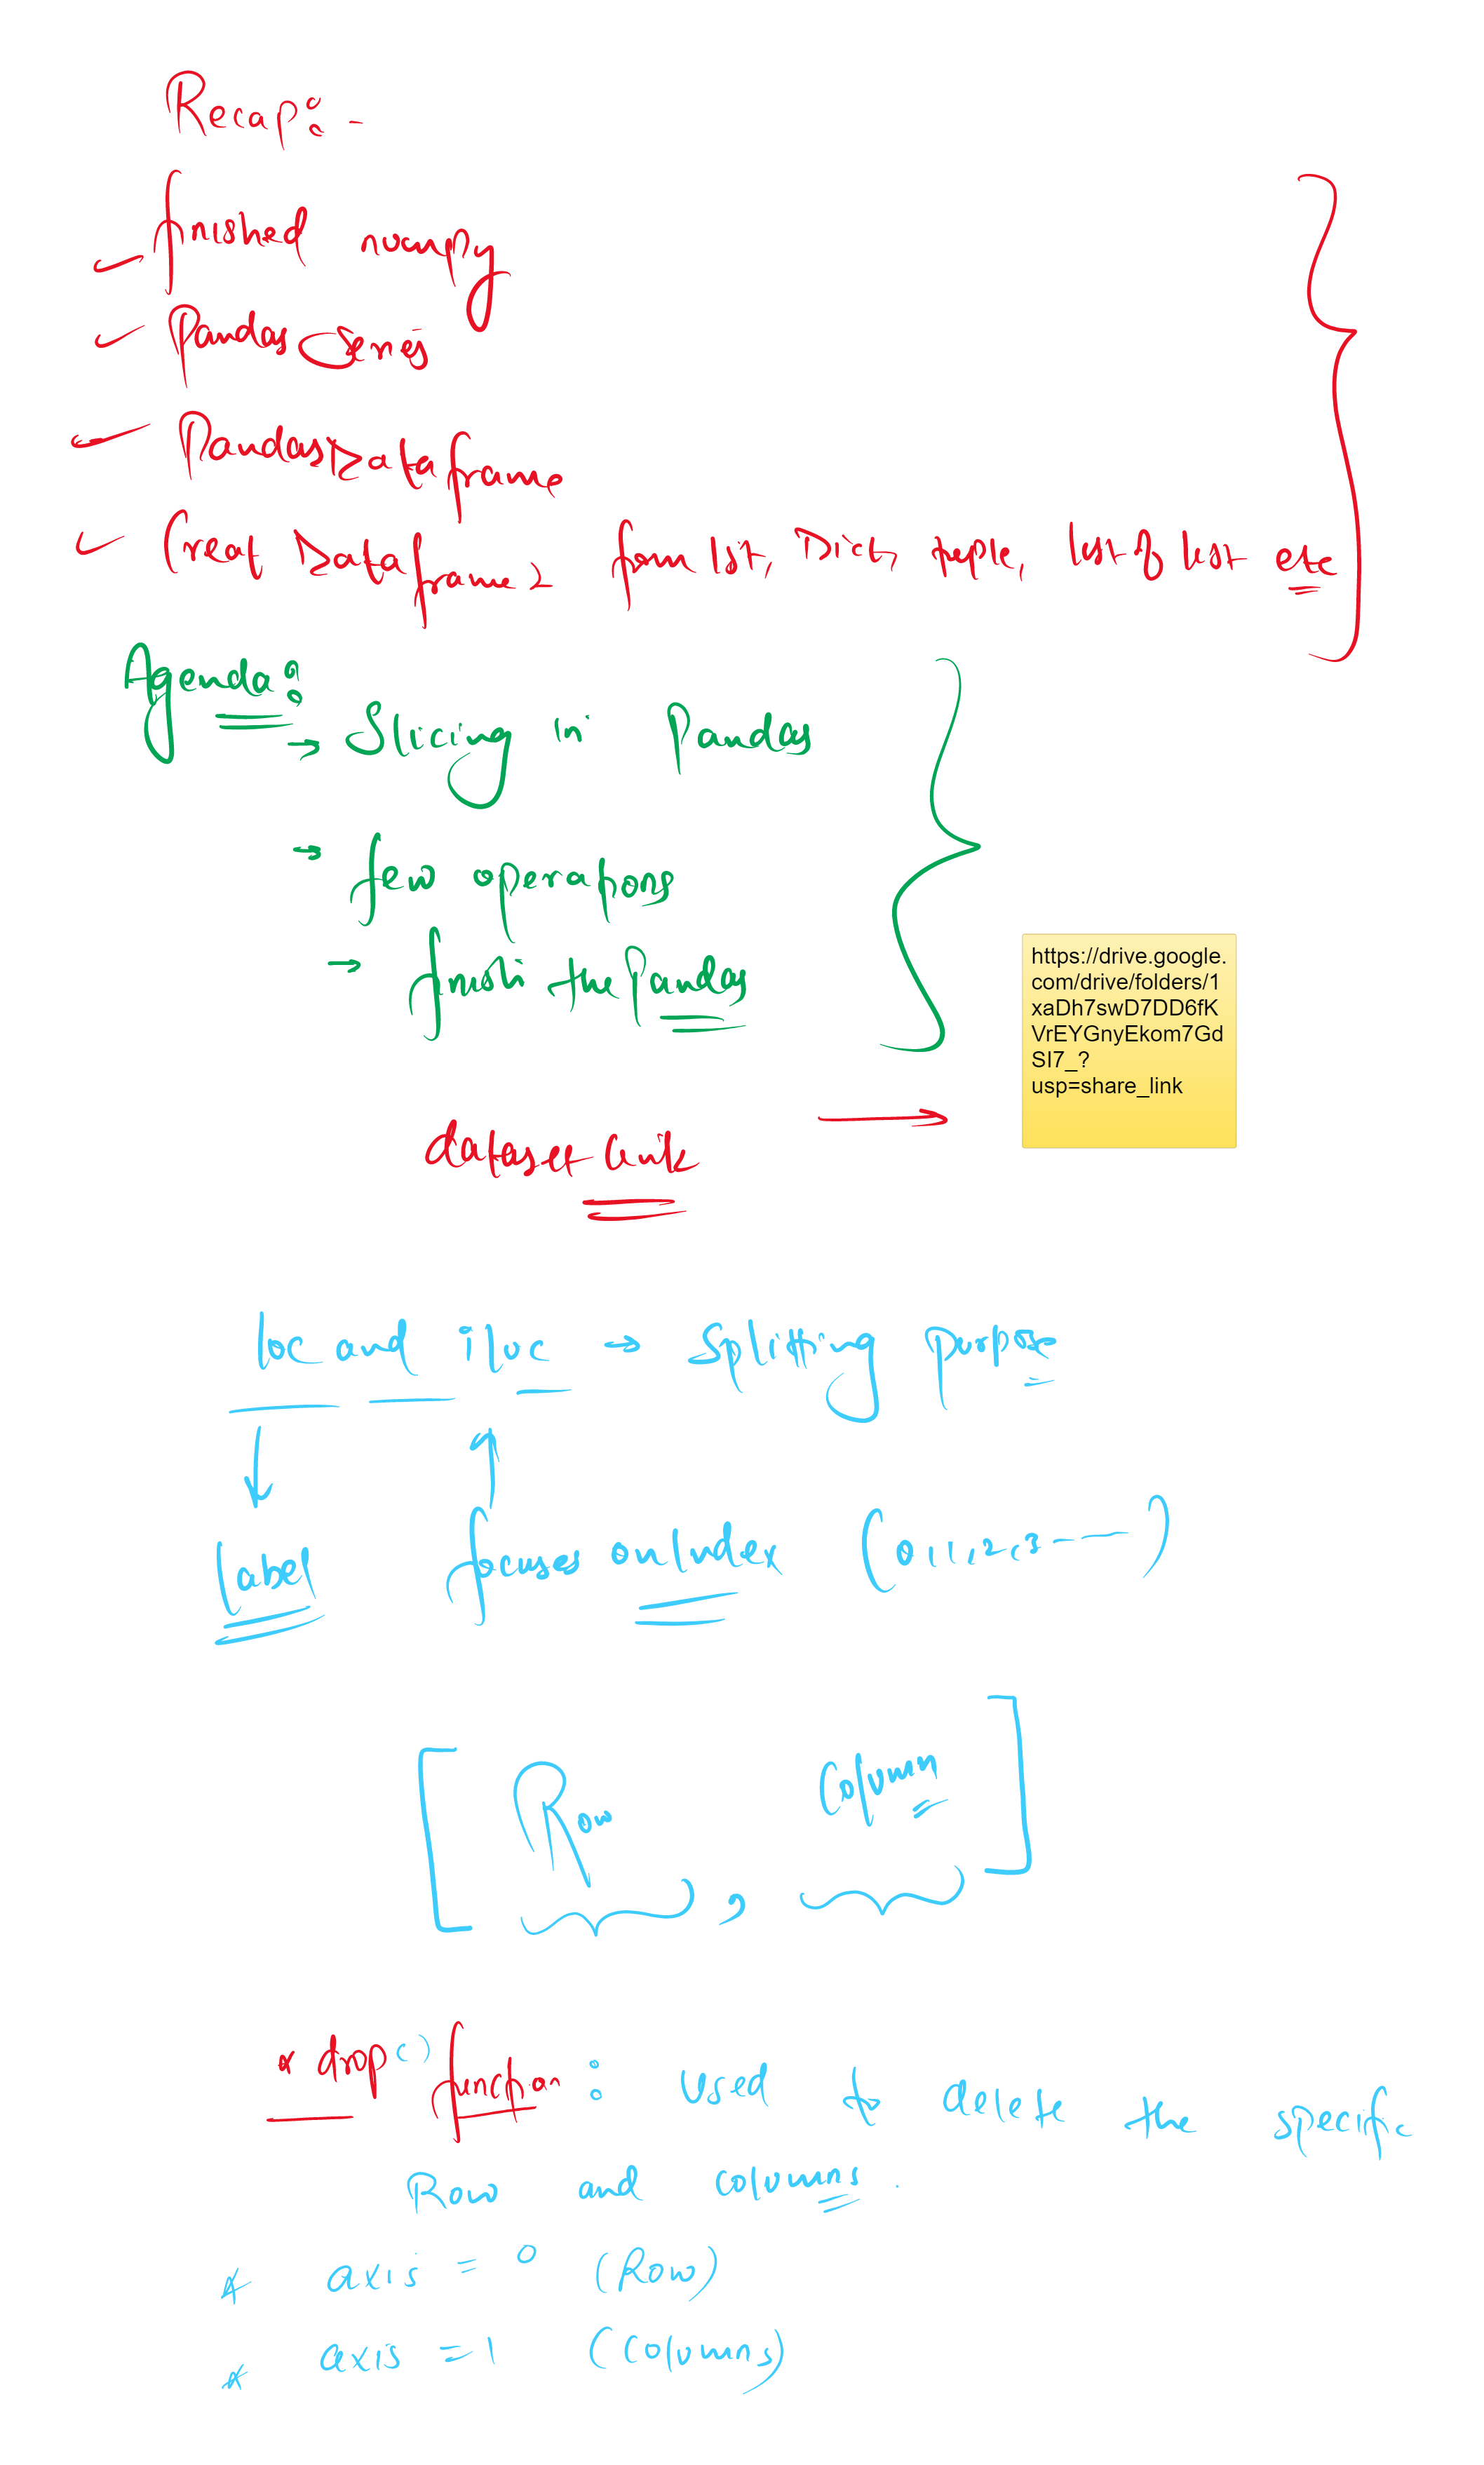 Recap: -
finished numpy
Pandas Series
Pandas Dataframe
Creat Dataframe from list, Dict, tuple, list of list etc
Agenda:
→ Slicing in Pandas
→ few operations
→ finish the Pandas
https://drive.google.
com/drive/folders/1
xaDh7swD7DD6fK
VrEYGnyEkom7Gd
SI7_?
usp=share_link
dataset Link →
loc and iloc → splitting purpose
Label focuses on Index (0,1,2,3---)
[Row, Column]
* drop() function: used to delete the specific
Row and columns.
* axis = 0 (Row)
* axis = 1 (Columns)